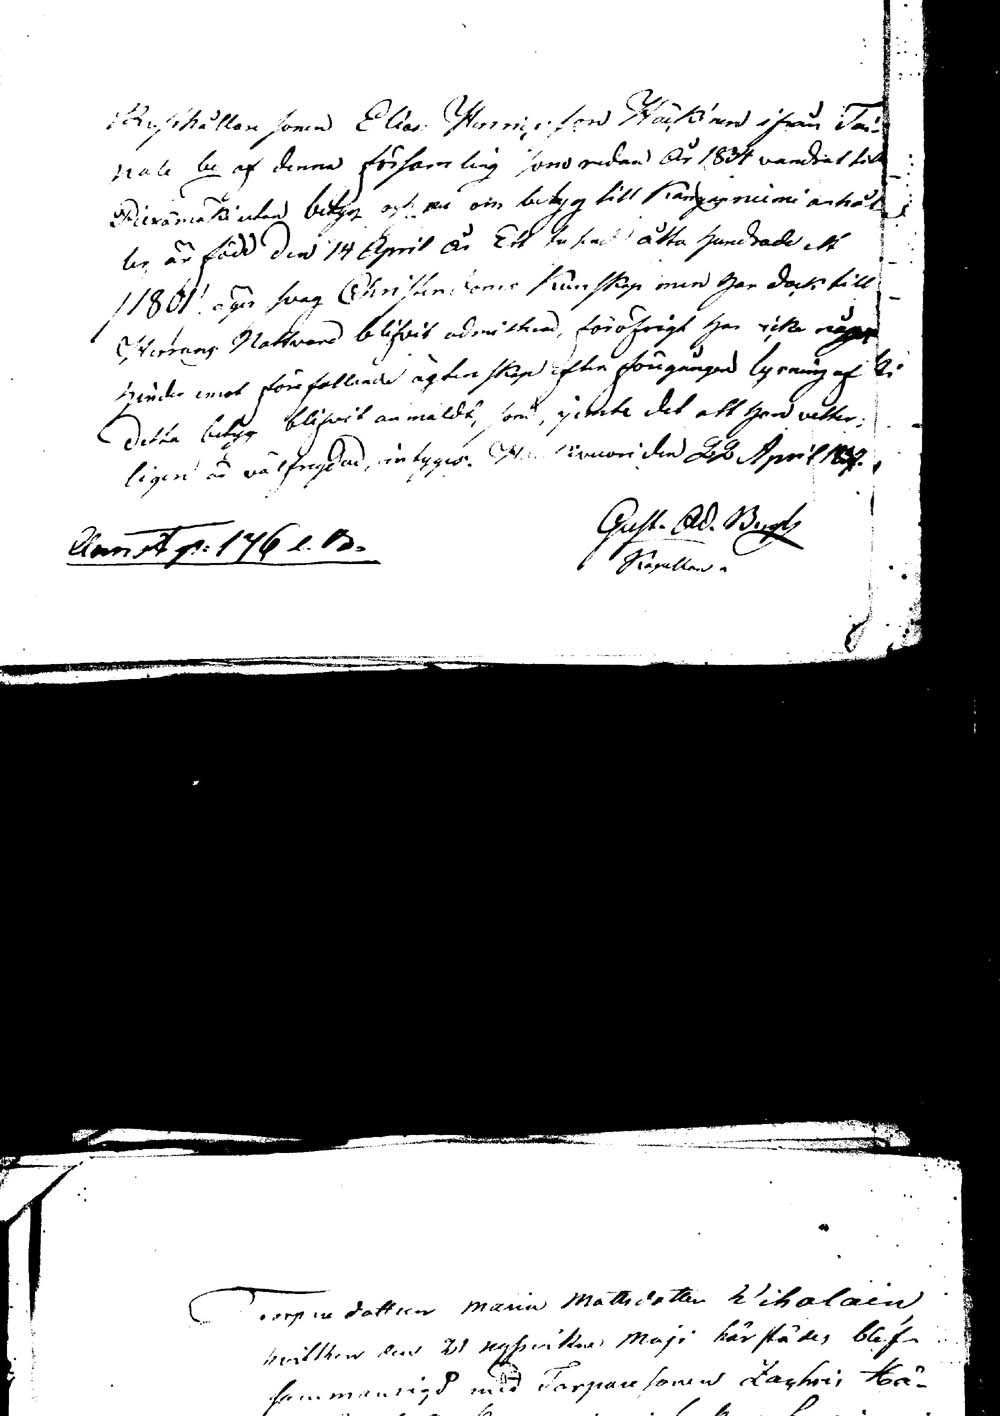 Rusthållare sonen Elias Henricsson Häckinen ifrån Tai-
pale by af denna församling som redan År 1834 vandrat till
utan betyg och nu om betyg till Kangasniemi anhål-
ler, är född den 14 April År Ett tusend åtta hundrade ett
/1801/ äger svag Christendoms Kunskap men har dock till
Herrans Nattvard blifvit admitterad, föröfrigt har icke något
hinder emot förefallande ägtenskap efter föregången lysning af
detta betyg blifvit anmäldt, som, jemte det att han vetter-
ligen är välfrejdad, intygar. den 22 April 1839.
Gust. Ad. Bergh
Kapellan.
p: 176 l. B.
Torpare dottren Maria Mattsdotter Wiholain
hvilken den 21 nyssvikne Maji härstädes blef
sammanvigd med Torpare sonen Zachris Hä-